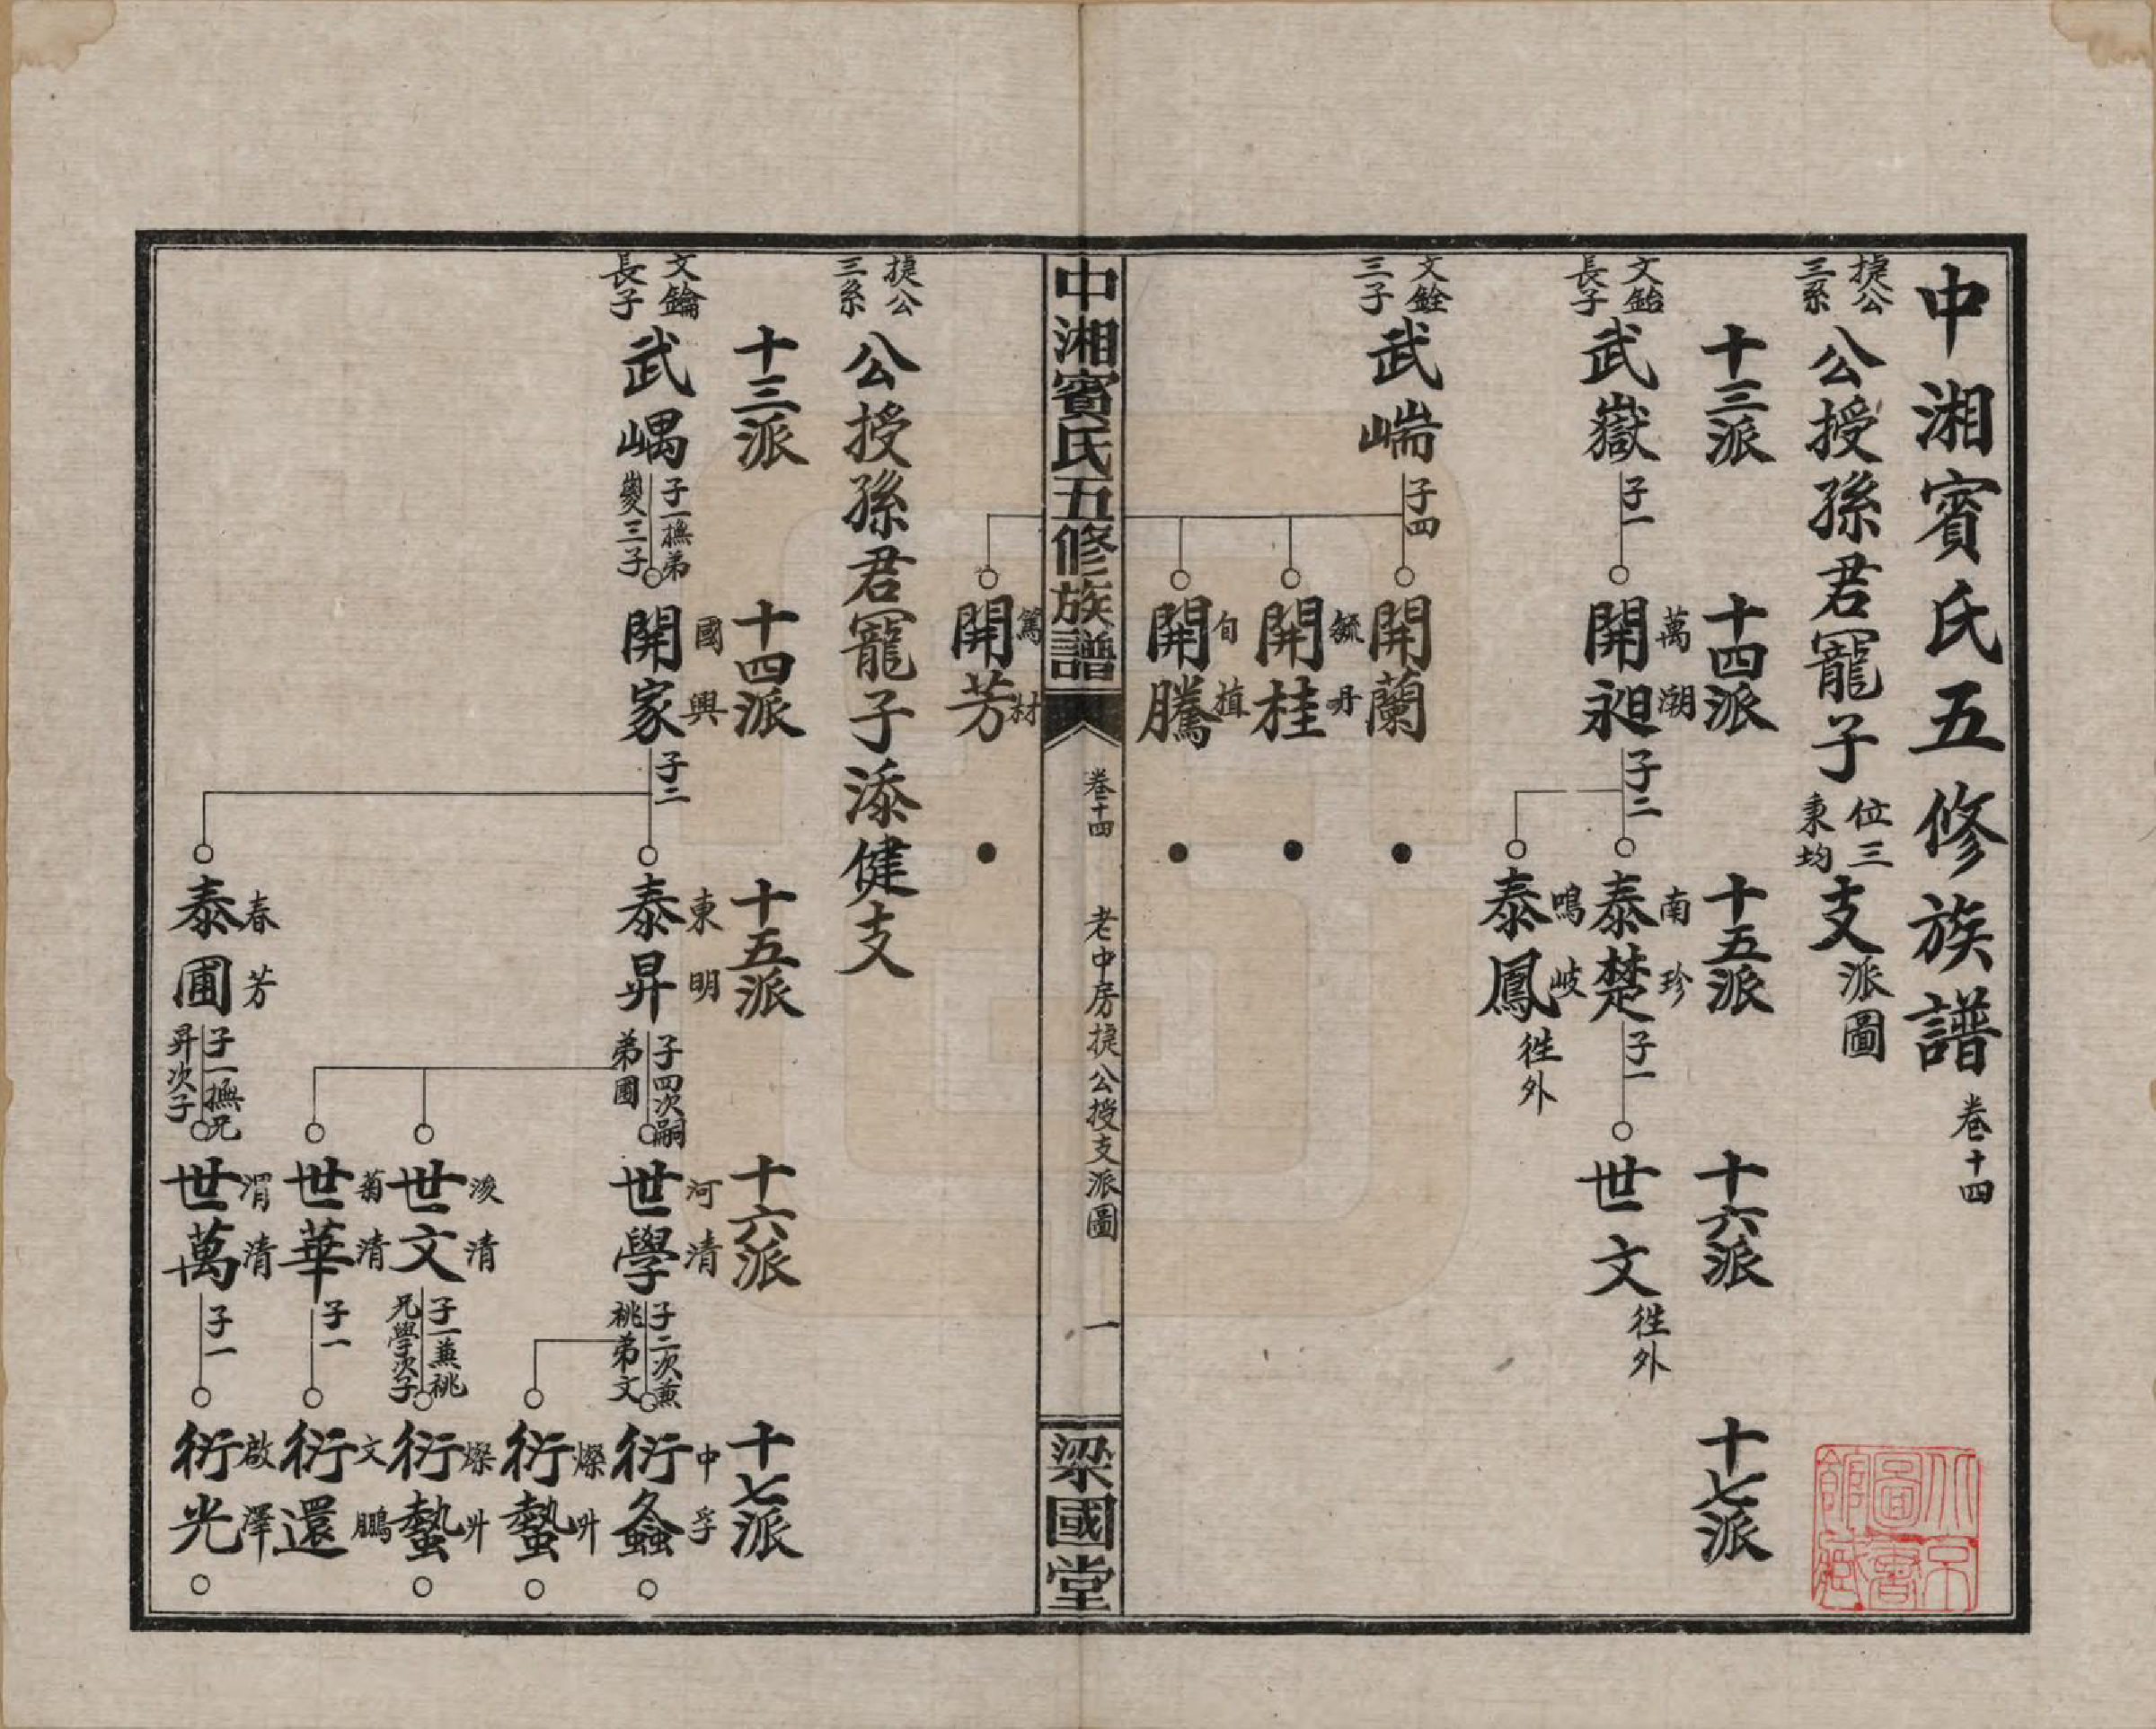 中湘賓氏五修族譜 卷十四
捷公三系 公授孫君寵子 位三秉均 支派圖
十三派 十四派 十五派 十六派 十七派
文鈶長子 武嶽 子一
萬潮
開昶 子二
南珍
泰楚 子一
世文 徃外
鳴岐
泰鳳 徃外
文銓三子 武㟨 子四
開蘭
毓丹
開桂
旬植
開騰
篤材
開芳
中湘賓氏五修族譜 卷十四 老中房捷公授支派圖 一 梁國堂
捷公三系 公授孫君寵子添健支
十三派 十四派 十五派 十六派 十七派
文錀長子 武嵎 子一撫弟夔三子
國興
開家 子二
東明
泰昇 子四次嗣弟圃
河清
世學 子二次兼祧弟文
中孚
衍螽
燦升
衍蟄
浚清
世文 子一兼祧兄學次子
燦升
衍蟄
菊清
世華 子一
文鵬
衍還
春芳
泰圃 子一撫兄昇次子
渭清
世萬 子一
啟澤
衍光
北京圖書館藏